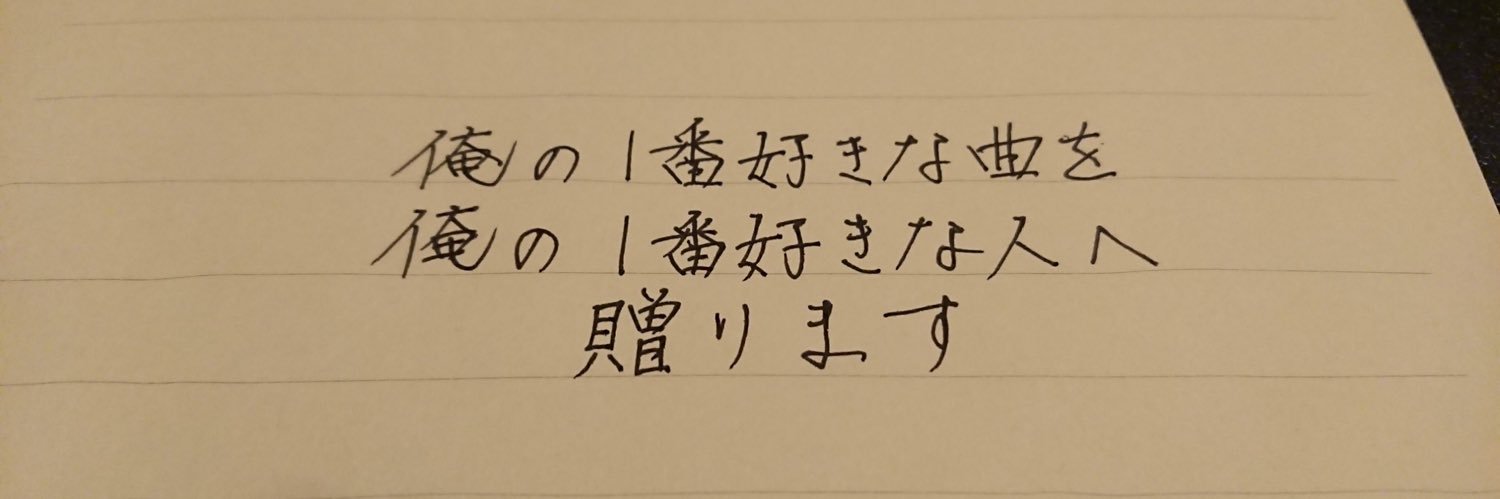 俺の1番好きな曲を
俺の1番好きな人へ
贈ります